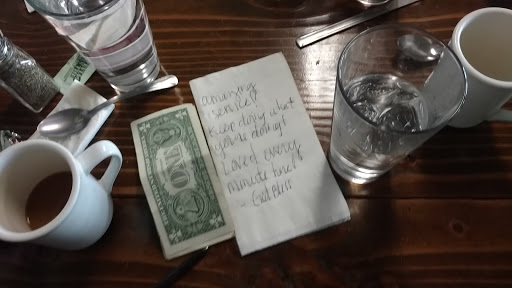 amazing
service!
Keep doing what
you're doing!
Loved every
minute here!
ONE